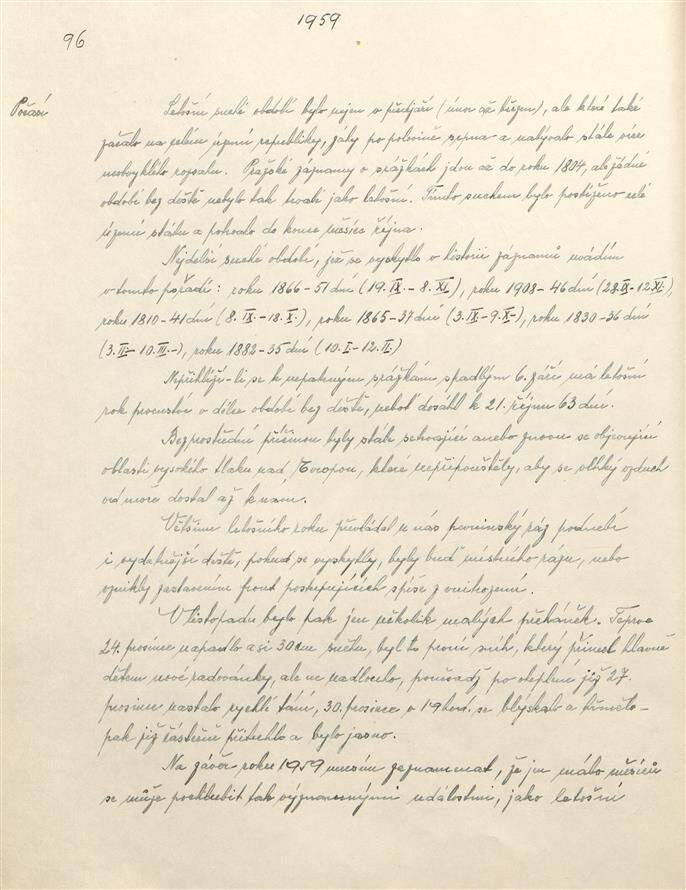 1959
96
Počasí
Letošní suché období bylo nejen v předjaří (únor až březen), ale které také
začalo na celém území republiky, záhy po polovině srpna a nabývalo stále více
neobvyklého rozsahu. Pražské záznamy o srážkách jdou až do roku 1804, ale žádné
období bez deště nebylo tak trvalé jako letošní. Tímto suchem bylo postiženo celé
území státu a potrvalo do konce měsíce října.
Nejdelší suché období, jež se vyskytlo v historii záznamů uvádím
v tomto pořadí: roku 1866 - 51 dní (19. IX. - 8. XI.), roku 1908 - 46 dní (28. IX - 12 XI.),
roku 1810 - 41 dní (8. IX. - 18. X.), roku 1865 - 37 dní (3. IX - 9. X -), roku 1830 - 36 dní
(3. II. - 10. III. -), roku 1882 - 35 dní (10. I - 12. II.)
Nepřihlíží-li se k nepatrným srážkám spadlým 6. září má letošní
rok prvenství v délce období bez deště, neboť dosáhl k 21. říjnu 63 dní.
Bezprostřední příčinou byly stále setrvající anebo znovu se objevující
oblasti vysokého tlaku nad Evropou, které nepřipouštěly, aby se vlhký vzduch
od moře dostal až k nám.
Většinu letošního roku převládal u nás pevninský ráz podnebí
i vydatnější deště, pokud se vyskytly, byly buď místního rázu, nebo
vznikly zastavením front postupujících spíše z vnitrozemí.
V listopadu bylo pak jen několik malých přeháněk. Teprve
24. prosince napadlo asi 30 cm sněhu, byl to první sníh, který přinesl hlavně
dětem nové radovánky, ale ne nadlouho, poněvadž po oteplení již 27.
prosince nastalo rychlé tání, 30. prosince v 19 hod. se blýskalo a hřmělo -
pak již částečně přituhlo a bylo jasno.
Na závěr roku 1959 musím zaznamenat, že jen málo měsíců
se může pochlubit tak významnými událostmi, jako letošní